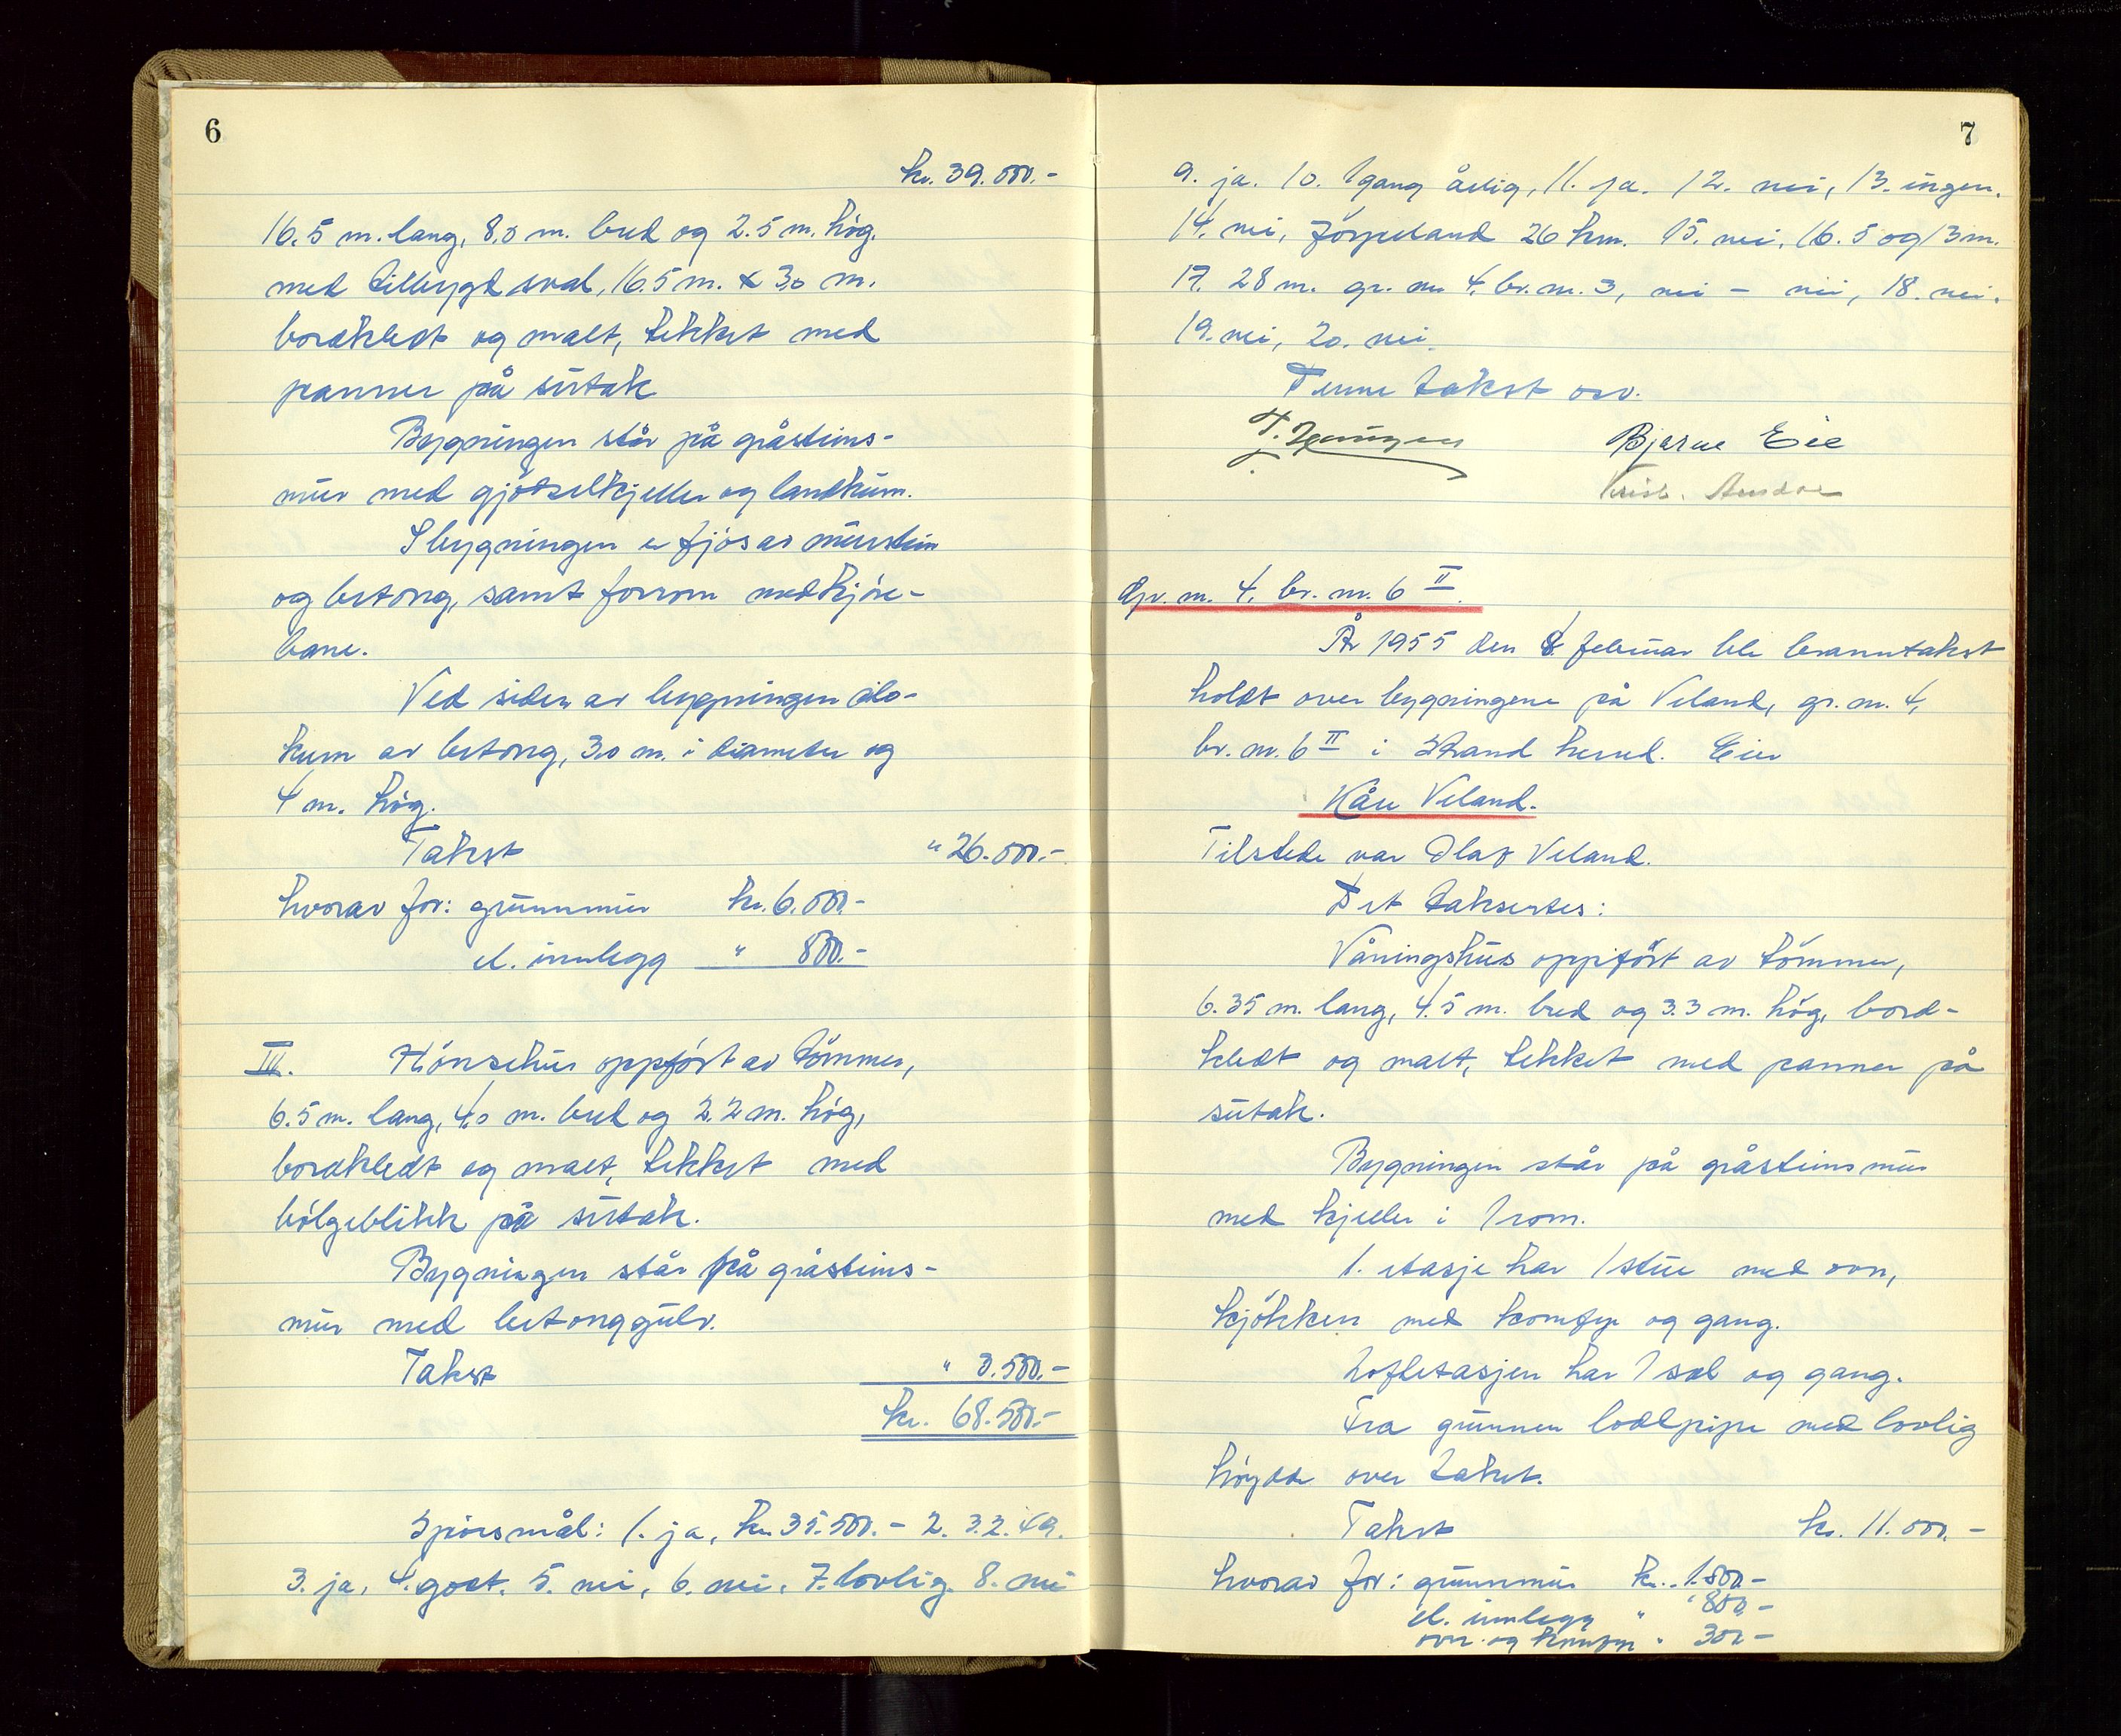 6
kr. 39.000.-
16.5 m. lang, 8.0 m. bred og 2.5 m. hög.
med tilbygd sval, 16.5 m. x 3.0 m.
bordkledt og malt, tekket med
panner på sutak
Bygningen står på gråsteins-
mur med gjödselkjeller og landkum.
I bygningen er fjös av murstein
og betong, samt forrom med kjöre-
bane.
Ved siden av bygningen silo-
kum av betong, 3.0 m. i diameter og
4 m. hög.
Takst " 26.000.-
hvorav for: grunnmur kr. 6.000.-
el. innlegg " 800.-
III. Hönsehus oppfört av tömmer,
6.5 m. lang, 4.0 m. bred og 2.2 m. hög,
bordkledt og malt, tekket med
bölgeblikk på sutak.
Bygningen står på gråsteins-
mur med betonggulv.
Takst " 3.500.-
kr. 68.500.-
Spörsmål: 1. ja, kr. 35.500.- 2. 3.2.49.
3. ja, 4. godt. 5. nei, 6. nei, 7. lovlig. 8. nei
7
9. ja. 10. 1 gang årlig, 11. ja. 12. nei, 13. ingen.
14. nei, Jörpeland 26 km. 15. nei, 16. 5 og 13 m.
17. 28 m. gr. nr. 4, br. nr. 3, nei - nei, 18. nei.
19. nei, 20. nei.
Denne takst osv.
Bjarne Eie
Gr. nr. 4, br. nr. 6 II.
År 1955 den 8. februar ble branntakst
holdt over bygningene på Veland, gr. nr. 4,
br. nr. 6 II i Strand herred. Eier
Kåre Veland.
Tilstede var Olav Veland.
Det taksertes:
Våningshus oppifört av tömmer,
6.35 m. lang, 4.5 m. bred og 3.3 m. hög, bord-
kledt og malt, tekket med panner på
sutak.
Bygningen står på gråsteinsmur
med kjeller i 1 rom.
1. etasje har 1 stue med ovn,
kjökken med komfyr og gang.
Loftetasjen har 1 sal og gang.
Fra grunnen loddpipe med lovlig
höyde over taket.
Takst kr. 11.000.-
hvorav for: grunnmur kr. 1.800.-
el. innlegg " 800.-
ovn og komfyr " 300.-